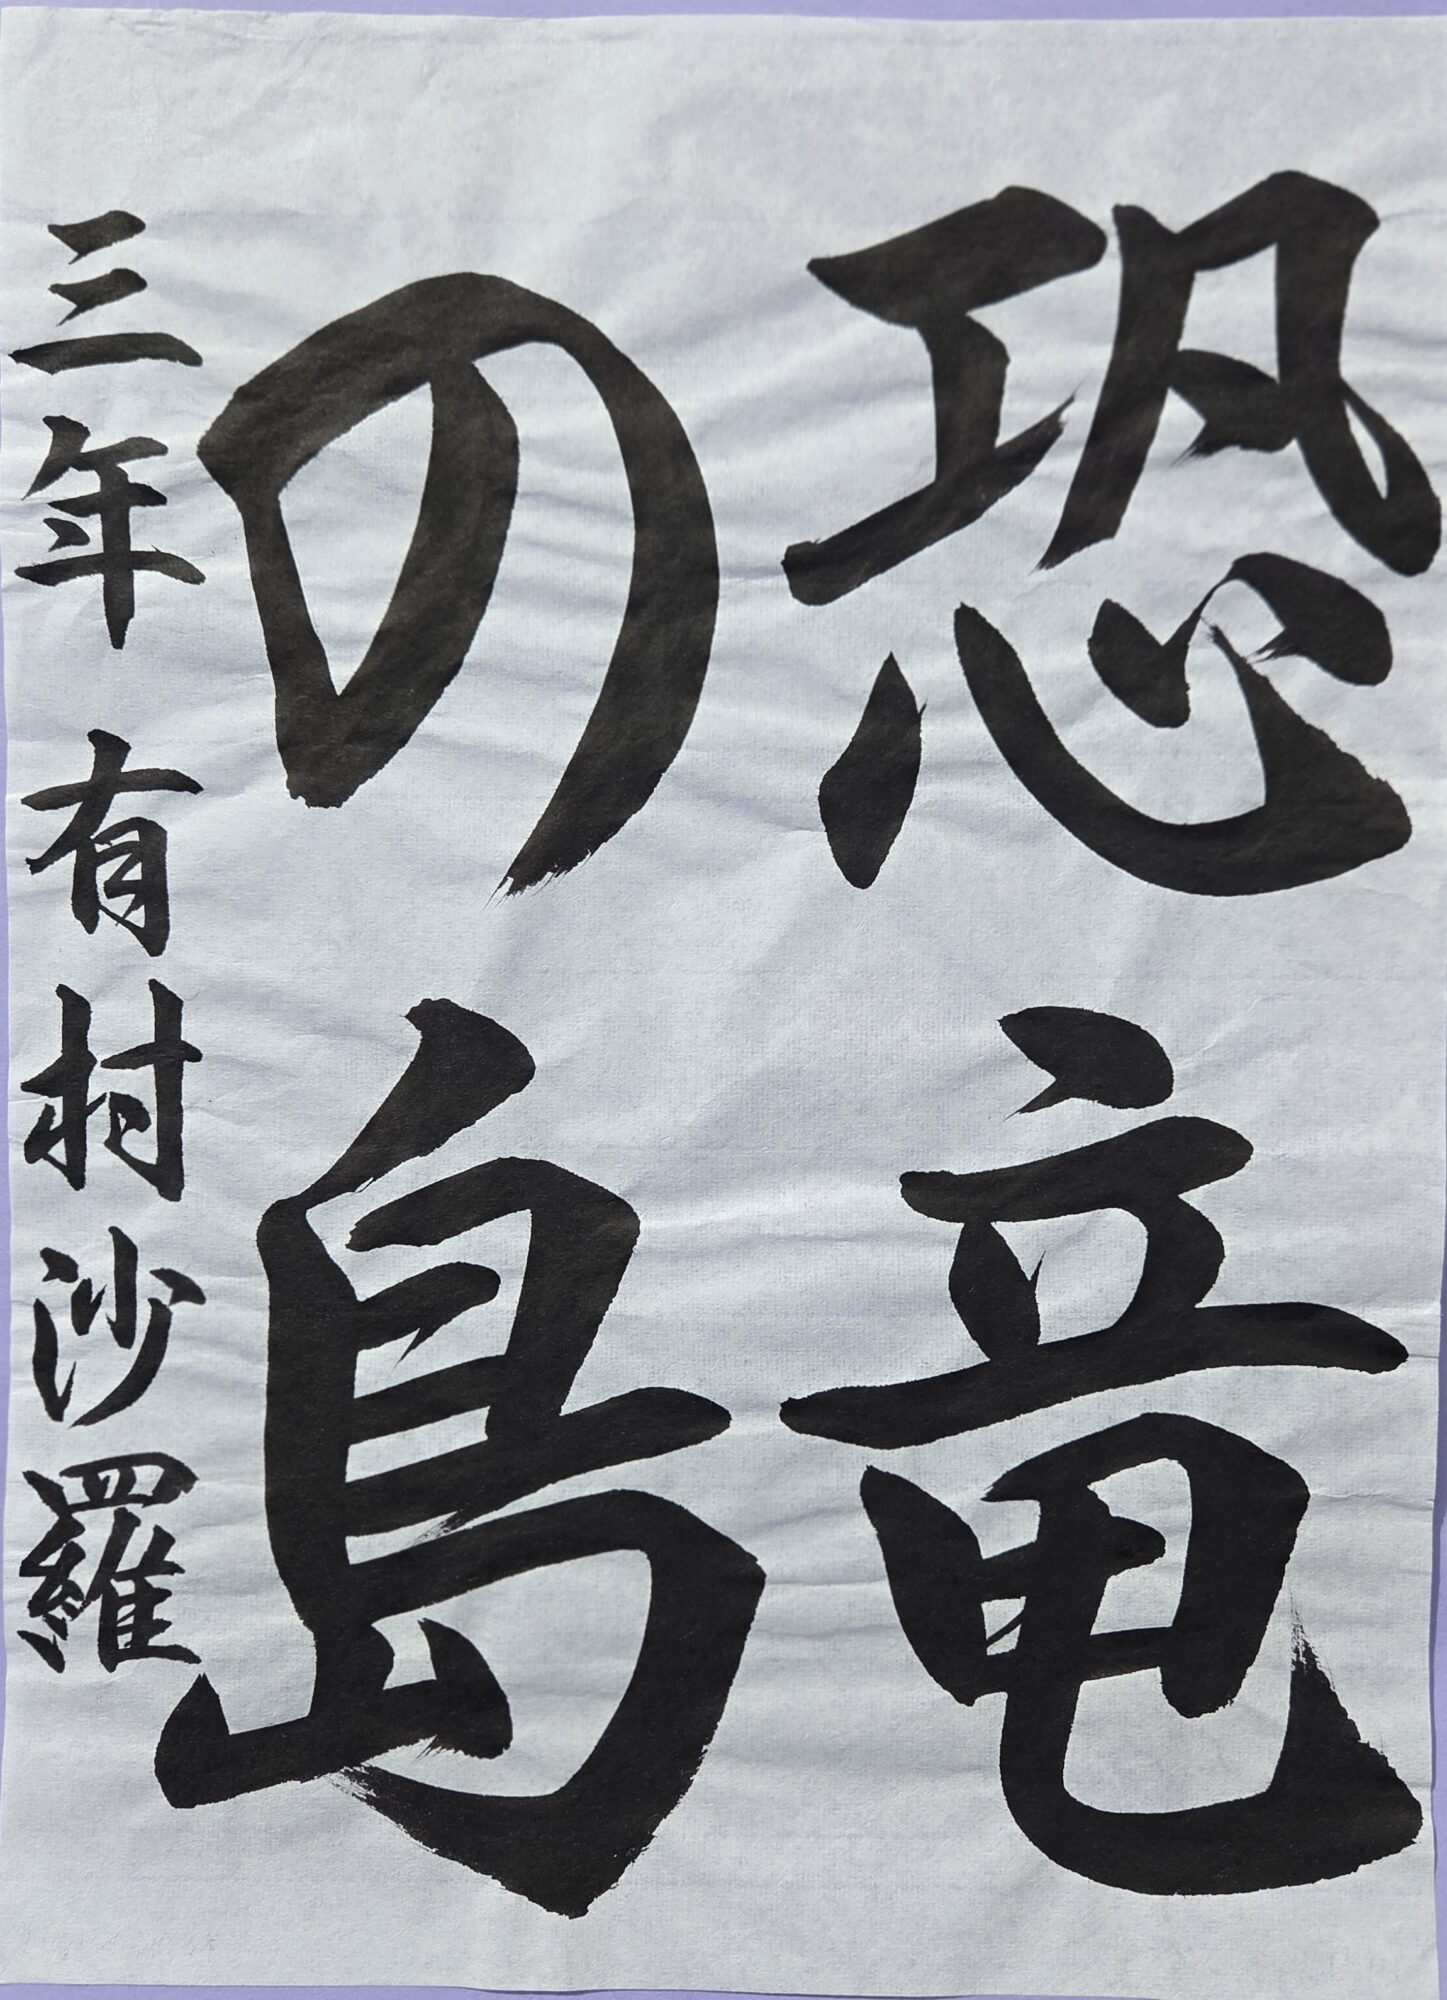 恐竜
の島
三年 有村沙羅